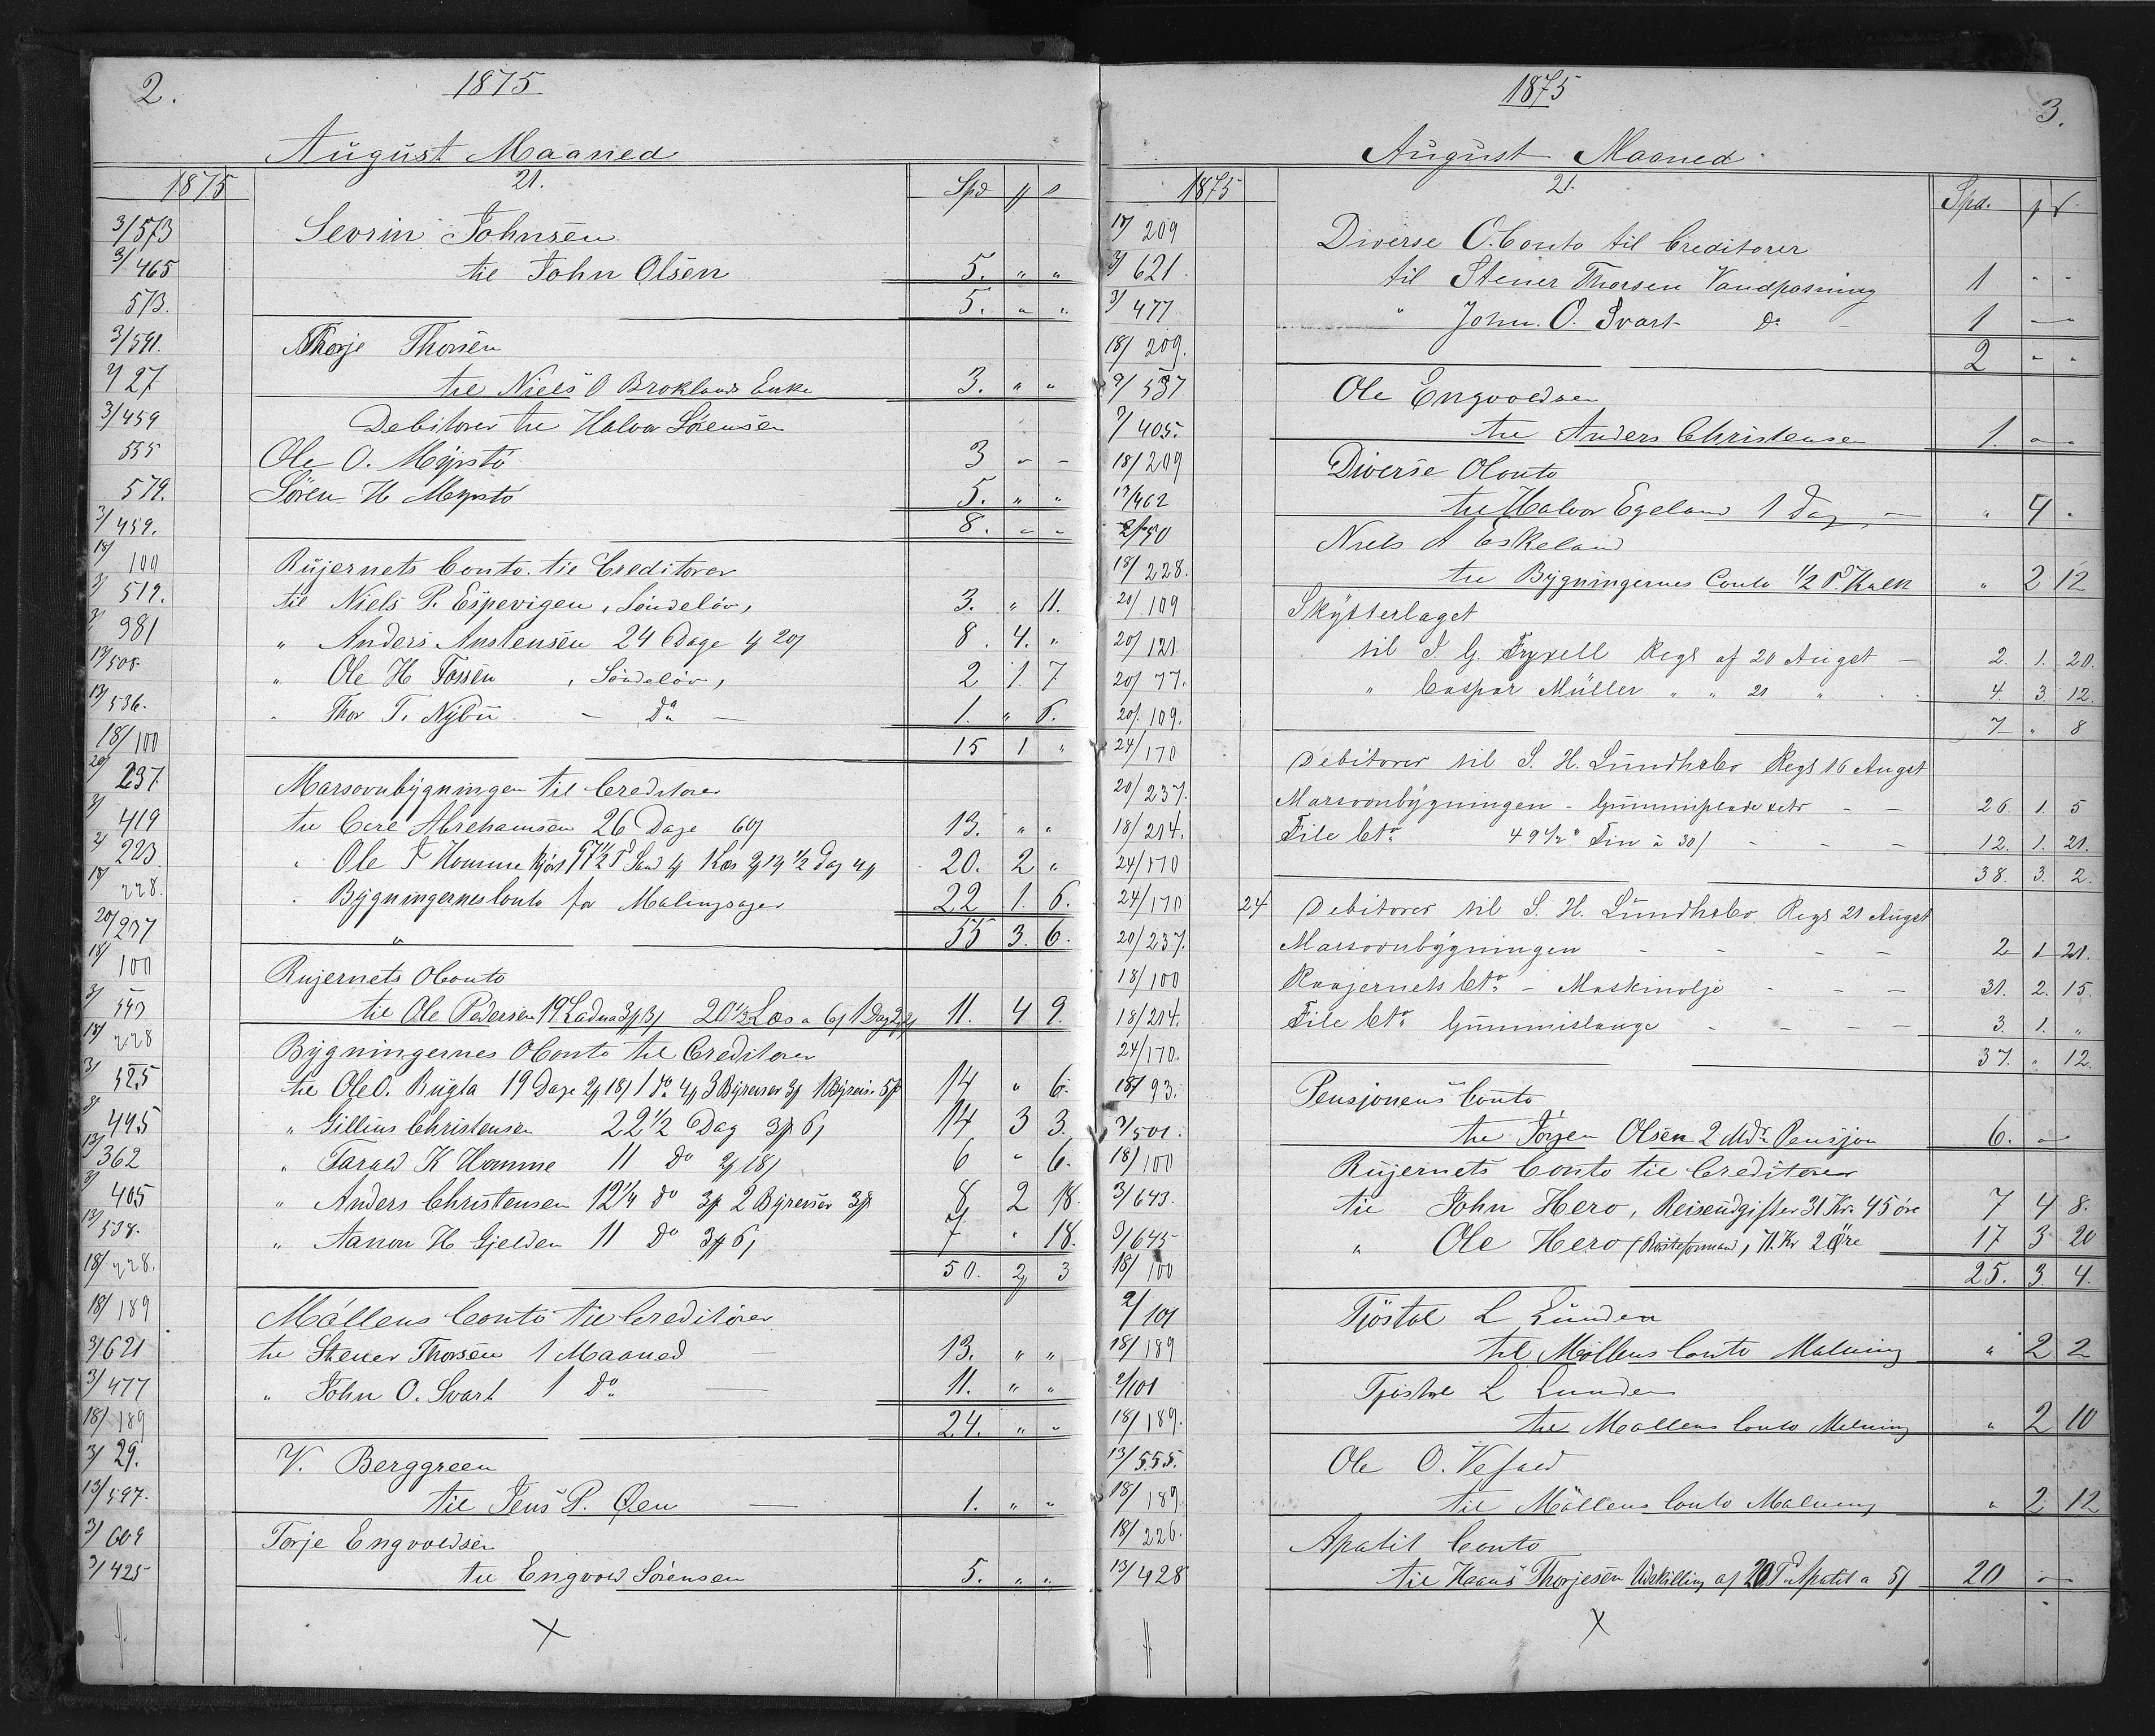 2. 1875
August Maaned
1875 21. Spd ₰ s
3/573 Sevrin Johnsen
3/465 til John Olsen 5. " "
573. 5. " "
3/591. Thorje Thorsen
2/27 til Niels O Broklands Enke 3. " "
3/459 Debitorer til Halvor Sörensen
535 Ole O. Myrstö 3 " "
579. Sören H Myrstö 5. " "
3/459. 8. " "
18/100 Rujernets Conto. til Creditorer
3/519. til Niels P. Espevigen, Söndelöv, 3. " 11.
3/381 " Anders Anstensen 24 Dage 4 20/ 8. 4. "
13/508. " Ole H Fossen, Söndelöv, 2 1. 7
13/536. " Thor T. Nybu - Do - 1. " 6.
18/100 15 1 "
20/237 Marsovnbygningen til Creditorer
3/419 til Carl Abrehamsen 26 Dage 60/ 13. " "
2/223 " Ole T Homme 20. 2 "
18/228. " Bygningernes Conto for Malingsager 22 1. 6.
20/237 " 55 3. 6.
18/100 Rujernets OConto
3/549 til Ole Pedersen 19 20 1/2 Læs a 6/ 1 Dag 11. 4 9.
18/228 Bygningernes OConto til Creditorer
3/525 til Ole O. Bugta 19 Dage 2₰ 18/ 1 do 4₰ 3 Byreiser 3₰ 1 Byreise 5₰ 14 " 6.
3/445 " Gillius Christensen 22 1/2 Dag 3₰ 6/ 14 3 3.
13/362 " Tarald K Homme 11 do 2₰ 18/ 6 " 6.
3/405 " Anders Christensen 12 1/4 do 3₰ 2 Byreiser 3₰ 8 2 18.
13/538. " Aanon H Gjelden 11 do 3₰ 6/ 7 " 18.
18/228. 50. 2 3
18/189 Möllens Conto til Creditorer
3/621 til Stener Thorsen 1 Maaned - 13. " "
3/477 " John O. Svart 1 do - 11. " "
18/189 24. " "
3/29. V. Berggreen
13/597. til Jens P. Öen - 1. " "
3/609 Torje Engvoldsen
3/425 til Engvold Sörensen 5. " "
X
1875 3.
August Maaned.
1875 21. Spd. ₰ s
18/209 Diverse O.Conto til Creditorer
3/621. til Stener Thorsen Vandpasning 1 " "
3/477 " John. O. Svart do - 1 "
18/209. 2 " "
9/537 Ole Engvoldsen
3/405. til Anders Christensen 1. "
18/209 Diverse OConto
13/462 til Halvor Egeland 1 Dag - " 4 "
2/50 Niels A Eskeland
18/228. til Bygningernes Conto 1/2 T. Kalk " 2 12
20/109 Skytterlaget
20/121 til I. G. Fryxell Regs af 20 Augst - 2. 1. 20.
20/77. " Caspar Müller " " 21 " 4. 3 12.
20/109. 7 " 8
24/170 Debitorer til S. H. Lundhsbo Regs 16 Augst
20/237. Marsovnbygningen - Gummiplade - - 26 1. 5
18/214. File Cto 49 1/2 Tin à 30/ - - - 12. 1. 21.
24/170 38. 3. 2.
24/170 24 Debitorer til S. H. Lundhsbo Regs 21 Augst
20/237. Marsovnbygningen - - - - 2 1 21.
18/100 Raajernets Cto - Maskinolje - - - 31. 2. 15.
18/214. File Cto Gummislange - - - 3. 1. "
24/170. 37. " 12.
18/93. Pensjonens Conto
3/501. til Jörgen Olsen 2 Mdr Pensjon 6. "
18/100 Rujernets Conto til Creditorer
3/643. til John Hero, Reiseudgifter 31 Kr. 45 öre 7 4 8.
3/645 " Ole Hero (Rösteformand), 71. Kr 2 Öre 17 3 20
18/100 25. 3. 4.
2/101 Tjöstol L Lunden
18/189 til Möllens Conto Malning " 2 2
2/101 Tjöstol L Lunden
18/189. til Möllens Conto Malning " 2 10
13/555. Ole O. Vefald
18/189 til Möllens Conto Malning " 2 12
18/226. Apatit Conto
13/428 til Haans Thorjesen Udskilling af 20 T. Apatit a 5/ 20 "
X